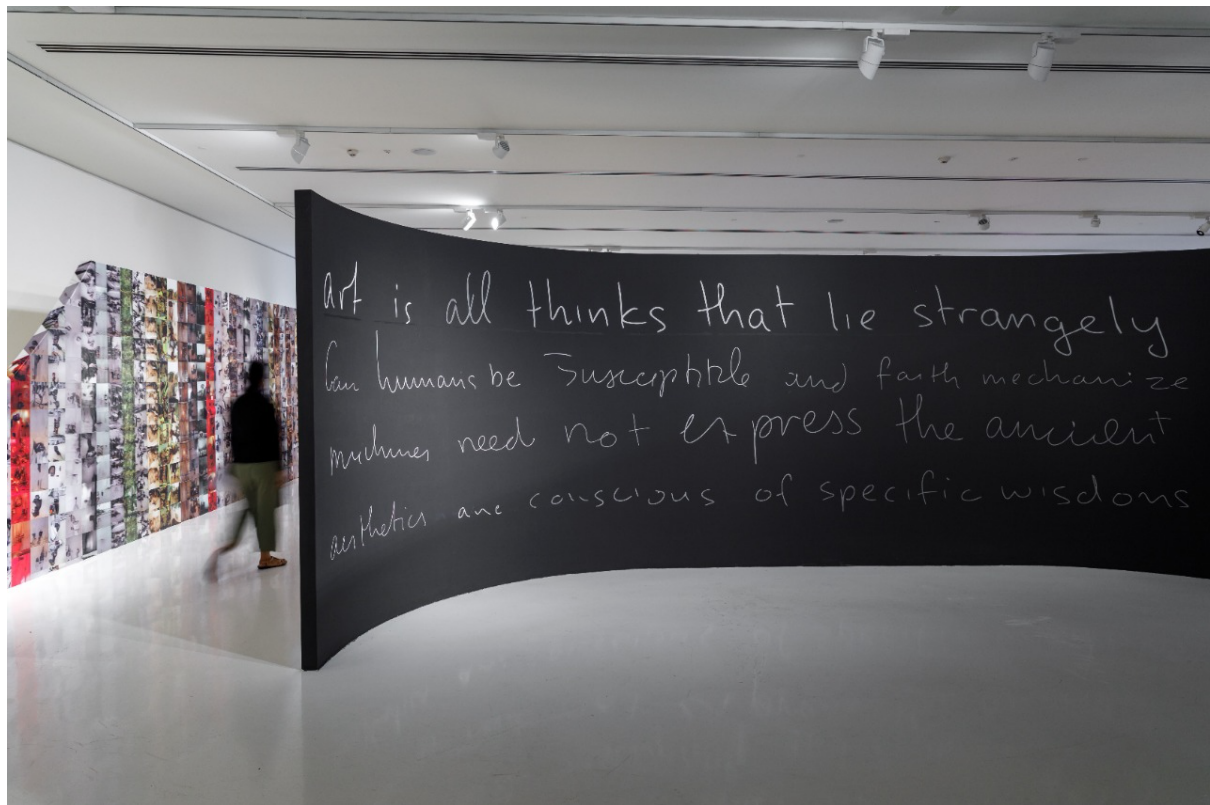 art is all thinks that lie strangely
Can humans be Susceptible and faith mechanize
machines need not express the ancient
aesthetics are conscious of specific wisdoms